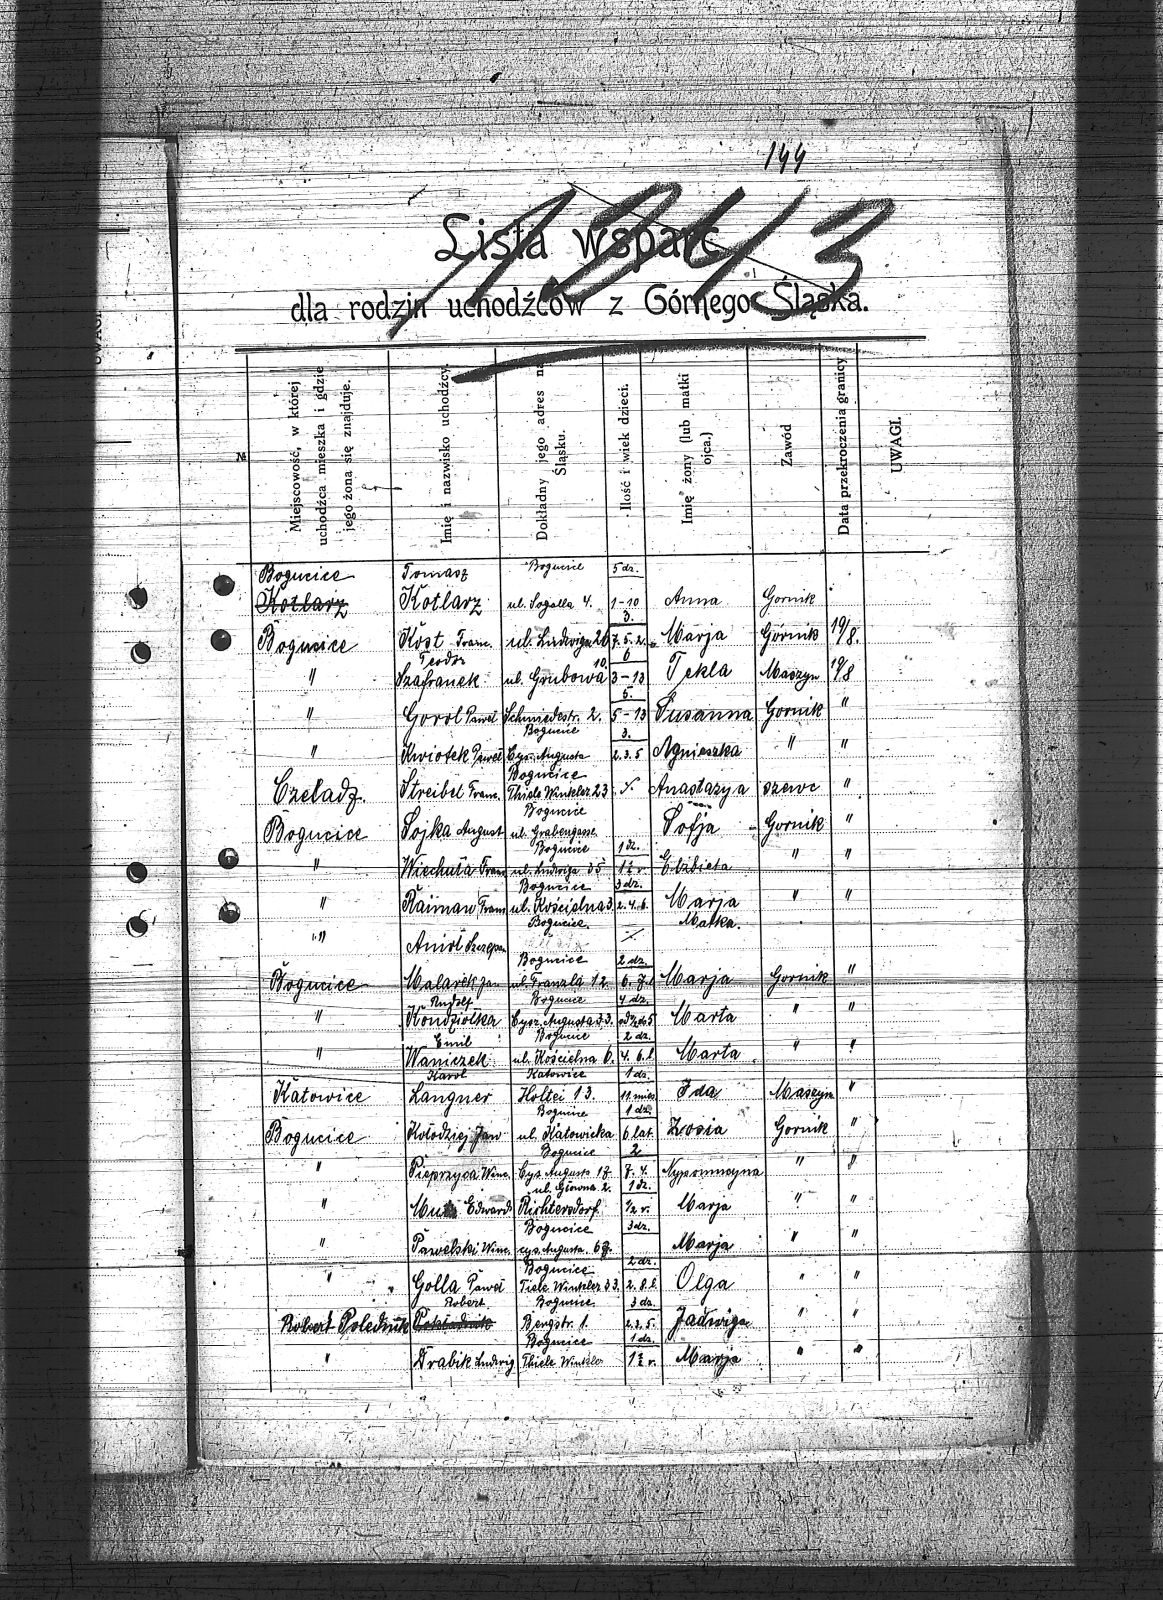 144
1243
Lista wsparć
dla rodzin uchodźców z Górnego Śląska.
№
Miejscowość, w której uchodźca mieszka i gdzie jego żona się znajduje.
Imię i nazwisko uchodźcy
Dokładny jego adres na Śląsku.
Ilość i wiek dzieci.
Imię żony (lub matki ojca.)
Zawód
Data przekroczenia granicy
UWAGI.
Bogucice Tomasz Bogucice 5 dz.
Kotlarz Kotlarz ul. Sogalla 4. 1-10 Anna Gornik
3.
Bogucice Kost Franc. ul. Ludwiga 26 7. 5. 2. Marja Górnik 19/8.
Teodor 10. 6
" Szafranek ul. Grubowa 3-13 Tekla Maszyn 19/8
5.
" Gorol Paweł Schmiedestr. 2. 5-13 Susanna Gornik "
Bogucice 3.
" Kwiotek Paweł Cys. Augusta 2. 3. 5 Agnieszka " "
Bogucice
Czeladz. Streibel Franc. Thiele Winkler 23 Anastazya szewc "
Bogucice
Bogucice Sojka August ul. Grabengasse Sofja Gornik "
Bogucice 1 dz.
" Wiechuła Franc ul. Ludwiga 35 1½ r. Elżbieta " "
Bogucice 3 dz.
" Raiman Franc ul. Kościelna 3. 2. 4. 6. Marja " "
Bogucice. Matka.
" Anioł Szczepan
Bogucice 2 dz.
Bogucice Malarek Jan ul. Franzla 12 6. 7. l Marja Gornik "
Rudolf Bogucice 4 dz.
" Kondziolka Cysz. Augusta 33. Marta " "
Emil Bogucice 2 dz.
" Waniczek ul. Kościelna 6. 4. 6. l Marta " "
Karol Katowice 1 dz.
Katowice Langner Holtei 13. 11 mies Ida Maszyn "
Bogucice 1 dz.
Bogucice Kołodziej Jan ul. Katowicka 6 lat Zosia Gornik "
Bogucice 2
" Pieprzyca Winc. Cys Augusta 17 7. 4. Nypomucyna " "
ul. Główna 2. 1 dz.
" Edward Richtersdorf. ½ r. Marja " "
Bogucice 3 dz.
" Pawelski Winc. cys. Augusta. 67. Marja " "
Bogucice 2 dz.
" Golla Paweł Tiele Winkler 33. 2. 8. l. Olga " "
Robert Bogucice. 3 dz.
Robert Polednik Bergstr. 1. 2. 3. 5. Jadwiga " "
Bogucice 1 dz.
" Drabik Ludwig Thiele Winkler 1½ r. Marja " "